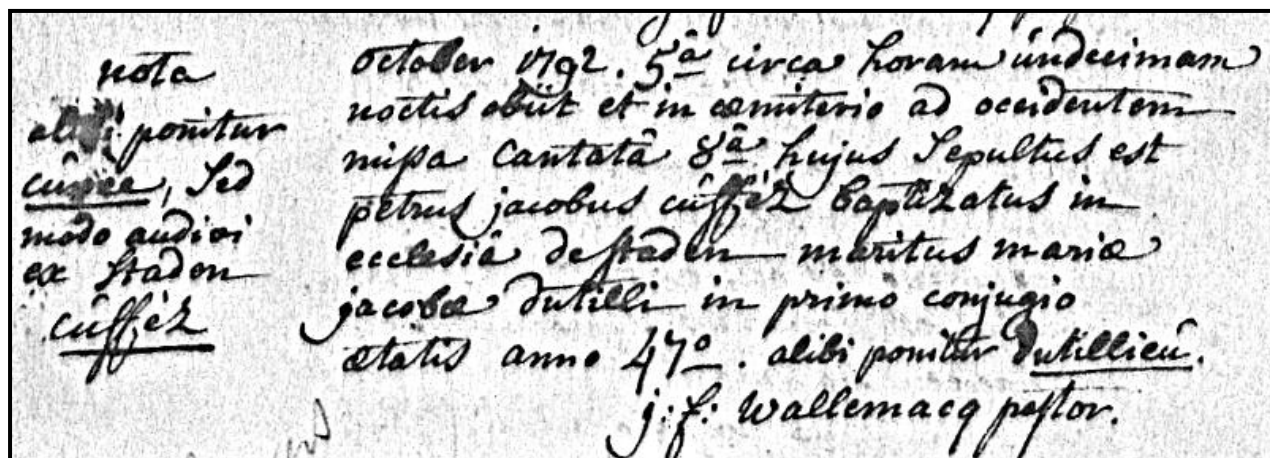 nota
alibi ponitur
cûvée, Sed
modo audivi
ex Staden
cûfféz
october 1792. 5â circa horam ûndecimam
noctis obiit et in cœmiterio ad occidentem
missa cantatâ 8â hujus Sepultus est
petrus jacobus cûfféz baptizatus in
ecclesiâ de staden maritus mariæ
jacobæ dutilli in primo conjugio
ætatis anno 47o. alibi ponitur dutillieû.
j: f: Wallemacq pastor.